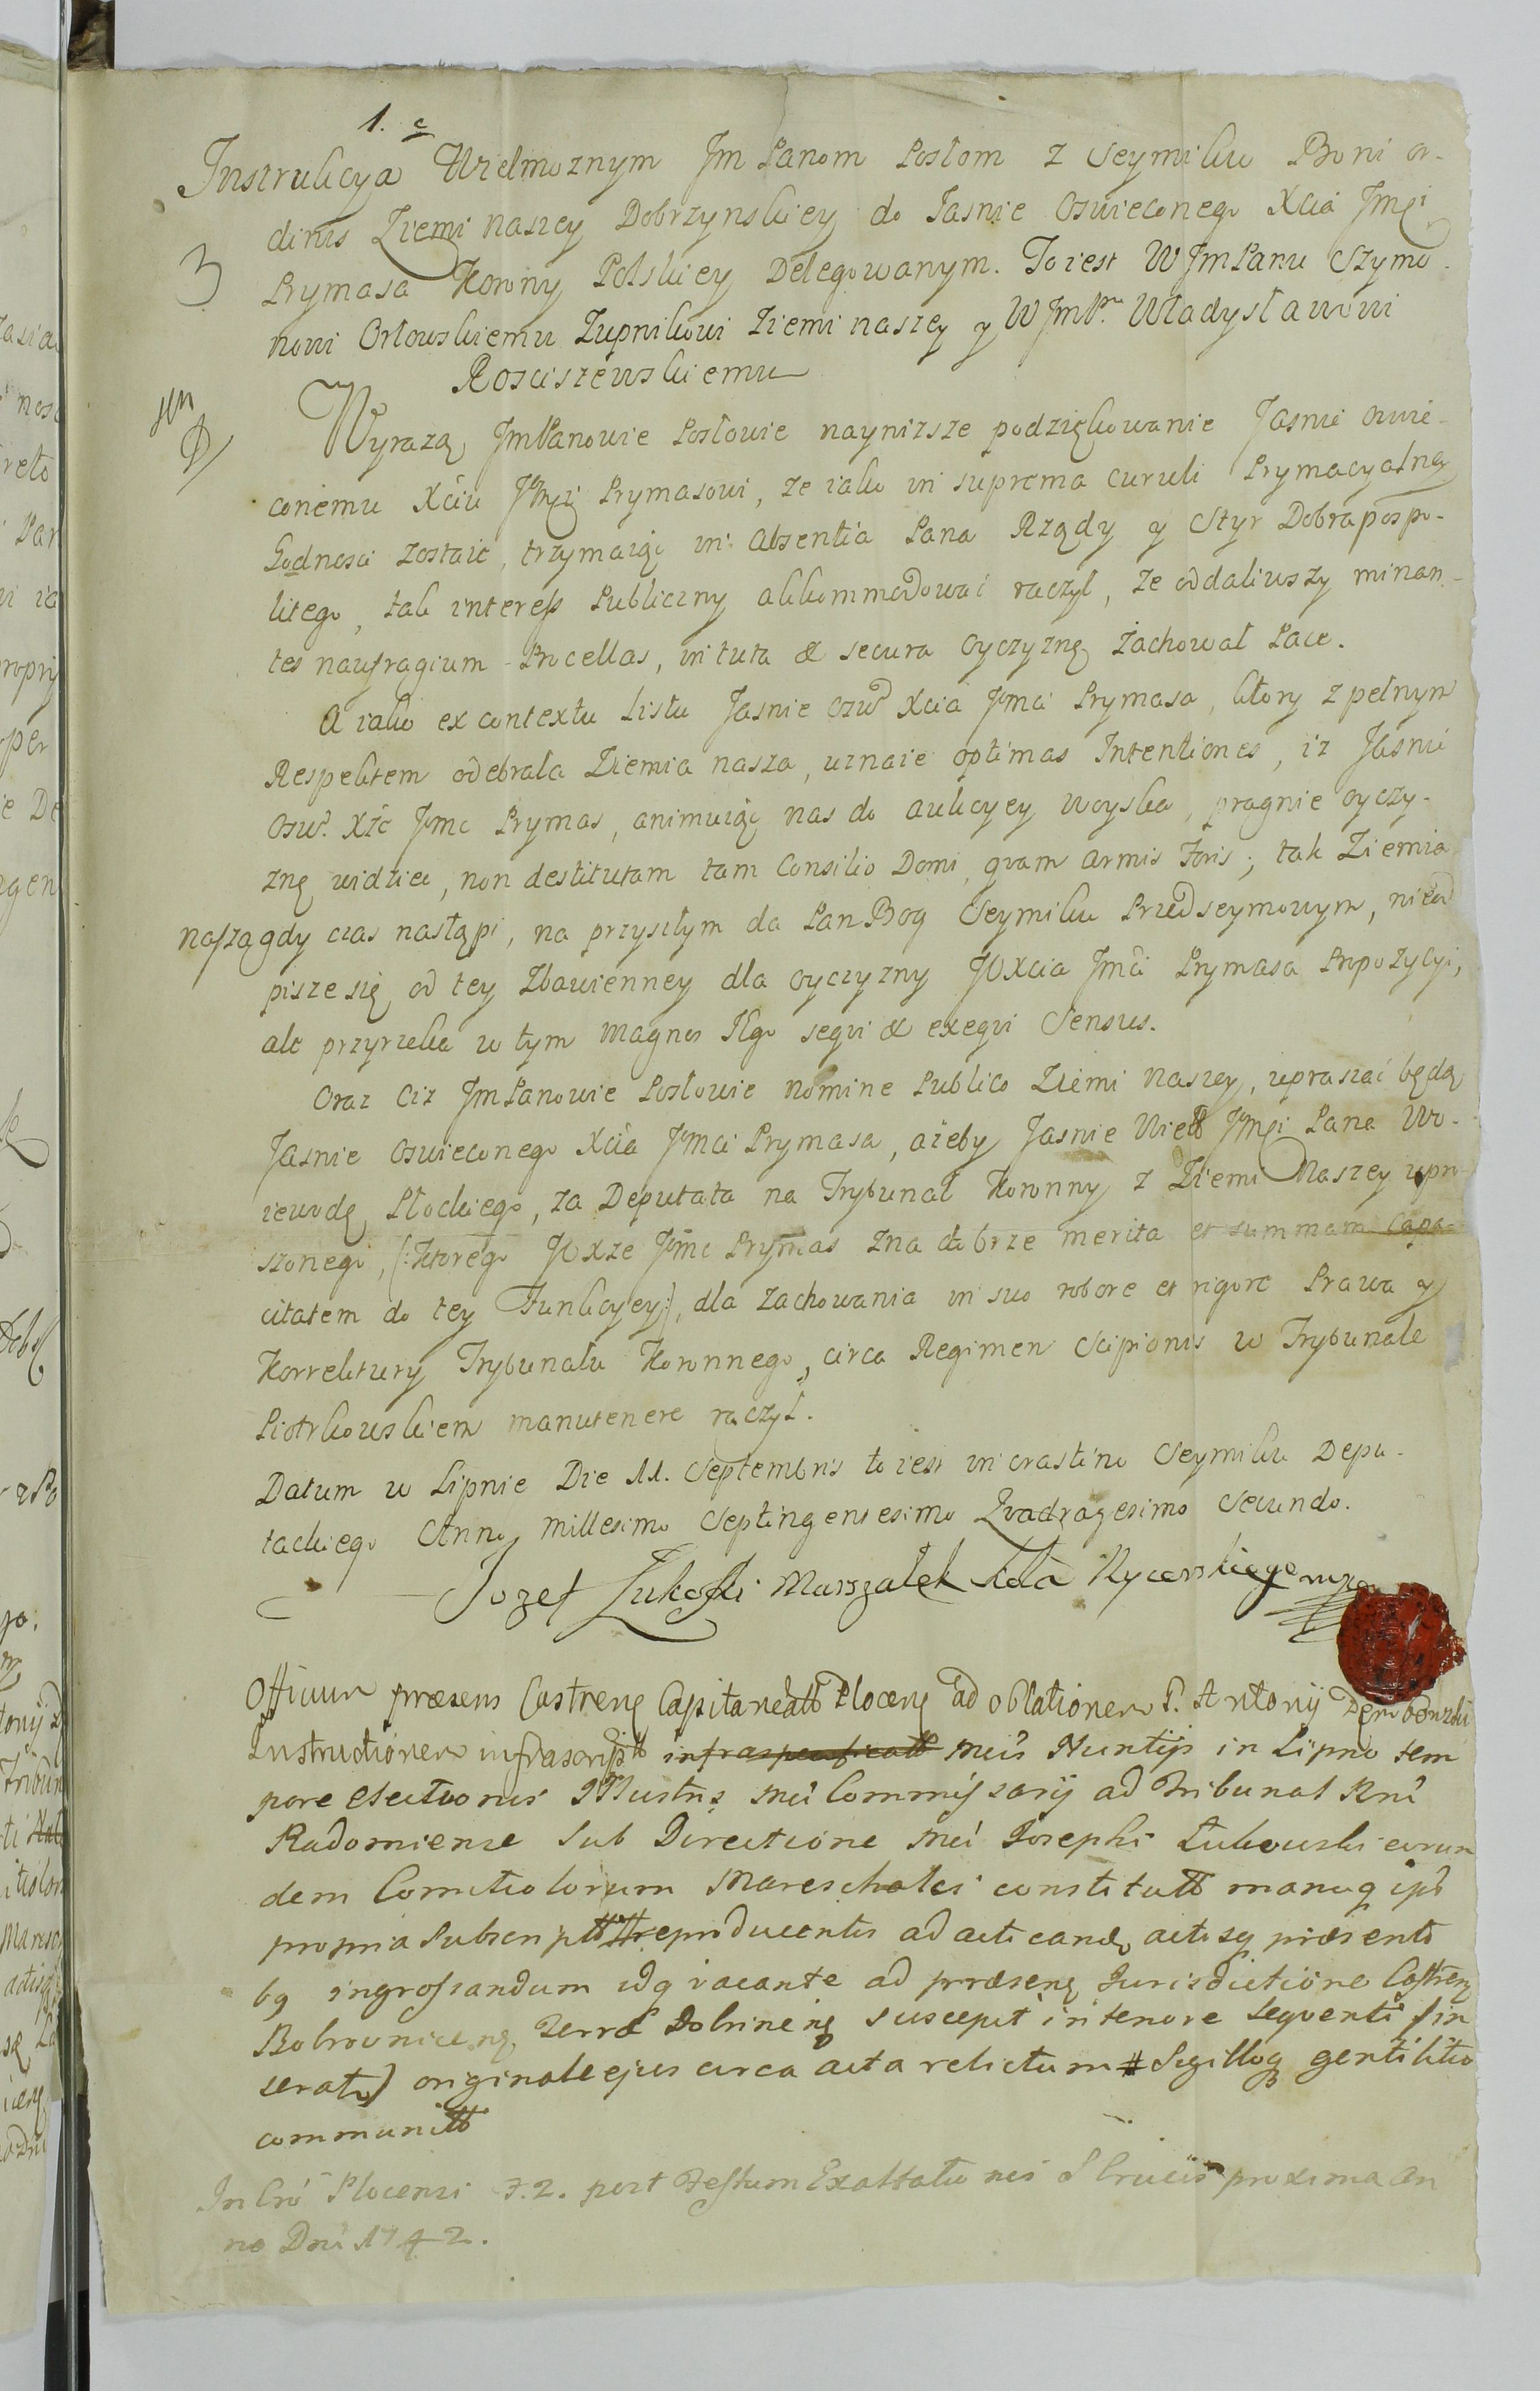 1. c
Instrukcya Wielmoznym Jm Panom Posłom z Seymiku Boni or-
dinis Ziemi naszey Dobrzynskiey do Jasnie Oswieconego Xcia Jmci
3
Prymasa Korony Polskiey Delegowanym. To iest W Jm Panu Szymo-
nowi Orłowskiemu Zupnikowi Ziemi naszey y W JmP. Władysławowi
Rosciszewskiemu
Wyrazą JmPanowie Posłowie nayniższe podziękowanie Jasnie Oswie-
conemu Xciu Jmci Prymasowi, ze iako in suprema curuli Prymacyalney
Godnosci zostaic, trzymaiąc in absentia Pana Rządy y Styr Dobra pospo-
litego, tak interess Publiczny akkommodowac raczył, ze oddaliwszy minan-
tes naufragium Procellas, in tuta & secura oyczyznę zachował Pace.
A iako ex contextu Listu Jasnie Osw Xcia Jmci Prymasa, ktory z pełnym
Respektem odebrała Ziemia nasza, uznaie optimas Intentiones, iz Jasnie
Osw. Xze Jmc Prymas, animuiąc nas do aukcyey woyska, pragnie oyczy-
znę widziec, non destitutam tam Consilio Domi, qvam armis Foris; tak Ziemia
nasza gdy czas nastąpi, na przyszłym da Pan Bog Seymiku Przedseymowym, nieod
pisze się od tey zbawienney dla oyczyzny JOXcia Jmci Prymasa Propozycyi,
ale przyrzeka w tym magnos Jego seqvi & exeqvi Sensus.
Oraz Ciz JmPanowie Posłowie nomine Publico Ziemi naszey, upraszać będą
Jasnie Oswieconego Xcia Jmci Prymasa, ażeby Jasnie Wiel Jmci Pana Wo-
iewodę Płockiego, za Deputata na Trybunał Koronny z Ziemi Naszey upro-
szonego, (:ktorego JOXze Jmc Prymas zna dobrze merita et summam capa-
citatem do tey Funkcyey:), dla zachowania in suo robore et rigore Prawa y
Korrektury Trybunału Koronnego, circa Regimen Scipionis w Trybunale
Piotrkowskiem manutenere raczył.
Datum w Lipnie Die 11. Septembris to iest in crastino Seymiku Depu-
tackiego Anno Millesimo Septingensesimo Qvadragesimo Secundo.
Jozef Łukoski Marszałek Koła Rycerskiego mp
Officium præsens Castrens Capitaneatt Plocens ad oblationem P. Antonij
Instructionem infrascriptt infraspecificatt Mcis Nuntijs in Lipno tem
pore electionis Illustris Mci Commissarij ad Tribunal Rni
Radomiense sub Directione Mci Josephi Łukowski eorun
dem Comitiolorum Mareschalci constitutt manuq ips
propria subscriptt reproducentis ad acticand actisq præsenti
bq ingrossandum idq vacante ad præsens Jurisdictione Castren
Bobrovnicens Terræ Dobrinens suscepit in tenore seqventi (in
seratur) originale ejus circa acta relictum # Sigilloq gentilitio
communitt
In Cro Plocensi F. 2. post Festum Exaltationis S Crucis proxima An
no Dni 1742.